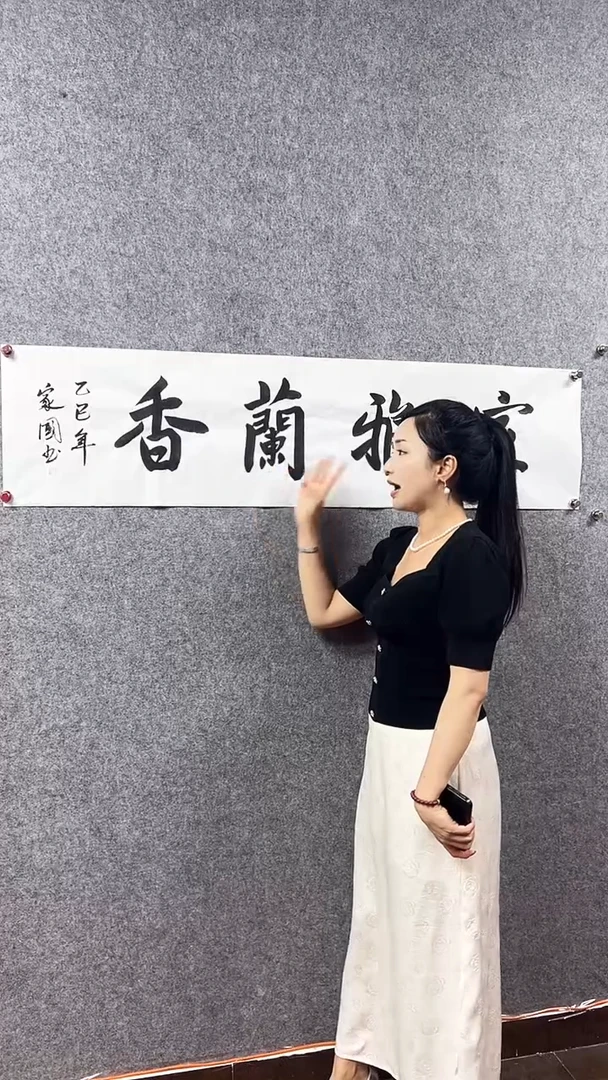 室雅蘭香
乙巳年
家國书